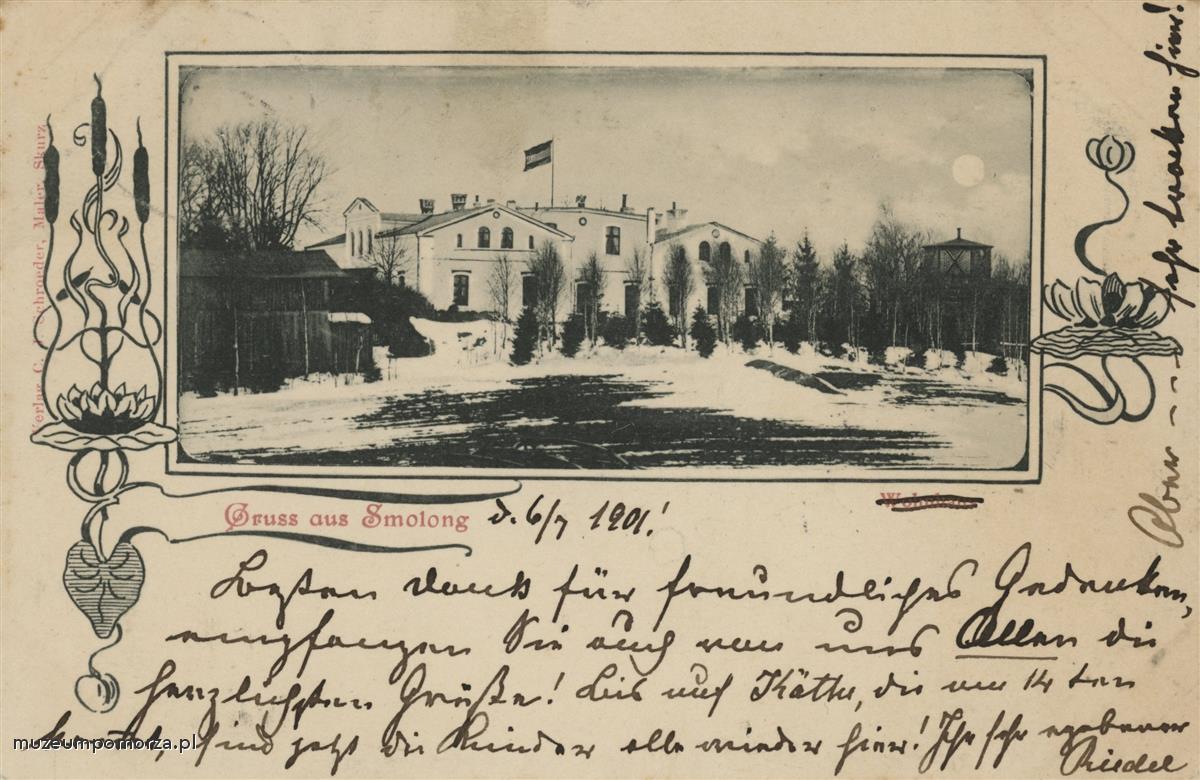 Verlag C. Schroeder, Maler, Skurz
Gruss aus Smolong d. 6/7 1901!
Wohnhaus
Besten Dank für freundliches Gedenken,
empfangen Sie auch von uns Allen die
herzlichsten Grüße! Bis auf Käthe, die am 14 ten
kommt, sind jetzt die Kinder alle wieder hier! Ihr sehr ergebener
Riedel
Aber sehr trocken hier!
muzeumpomorza.pl